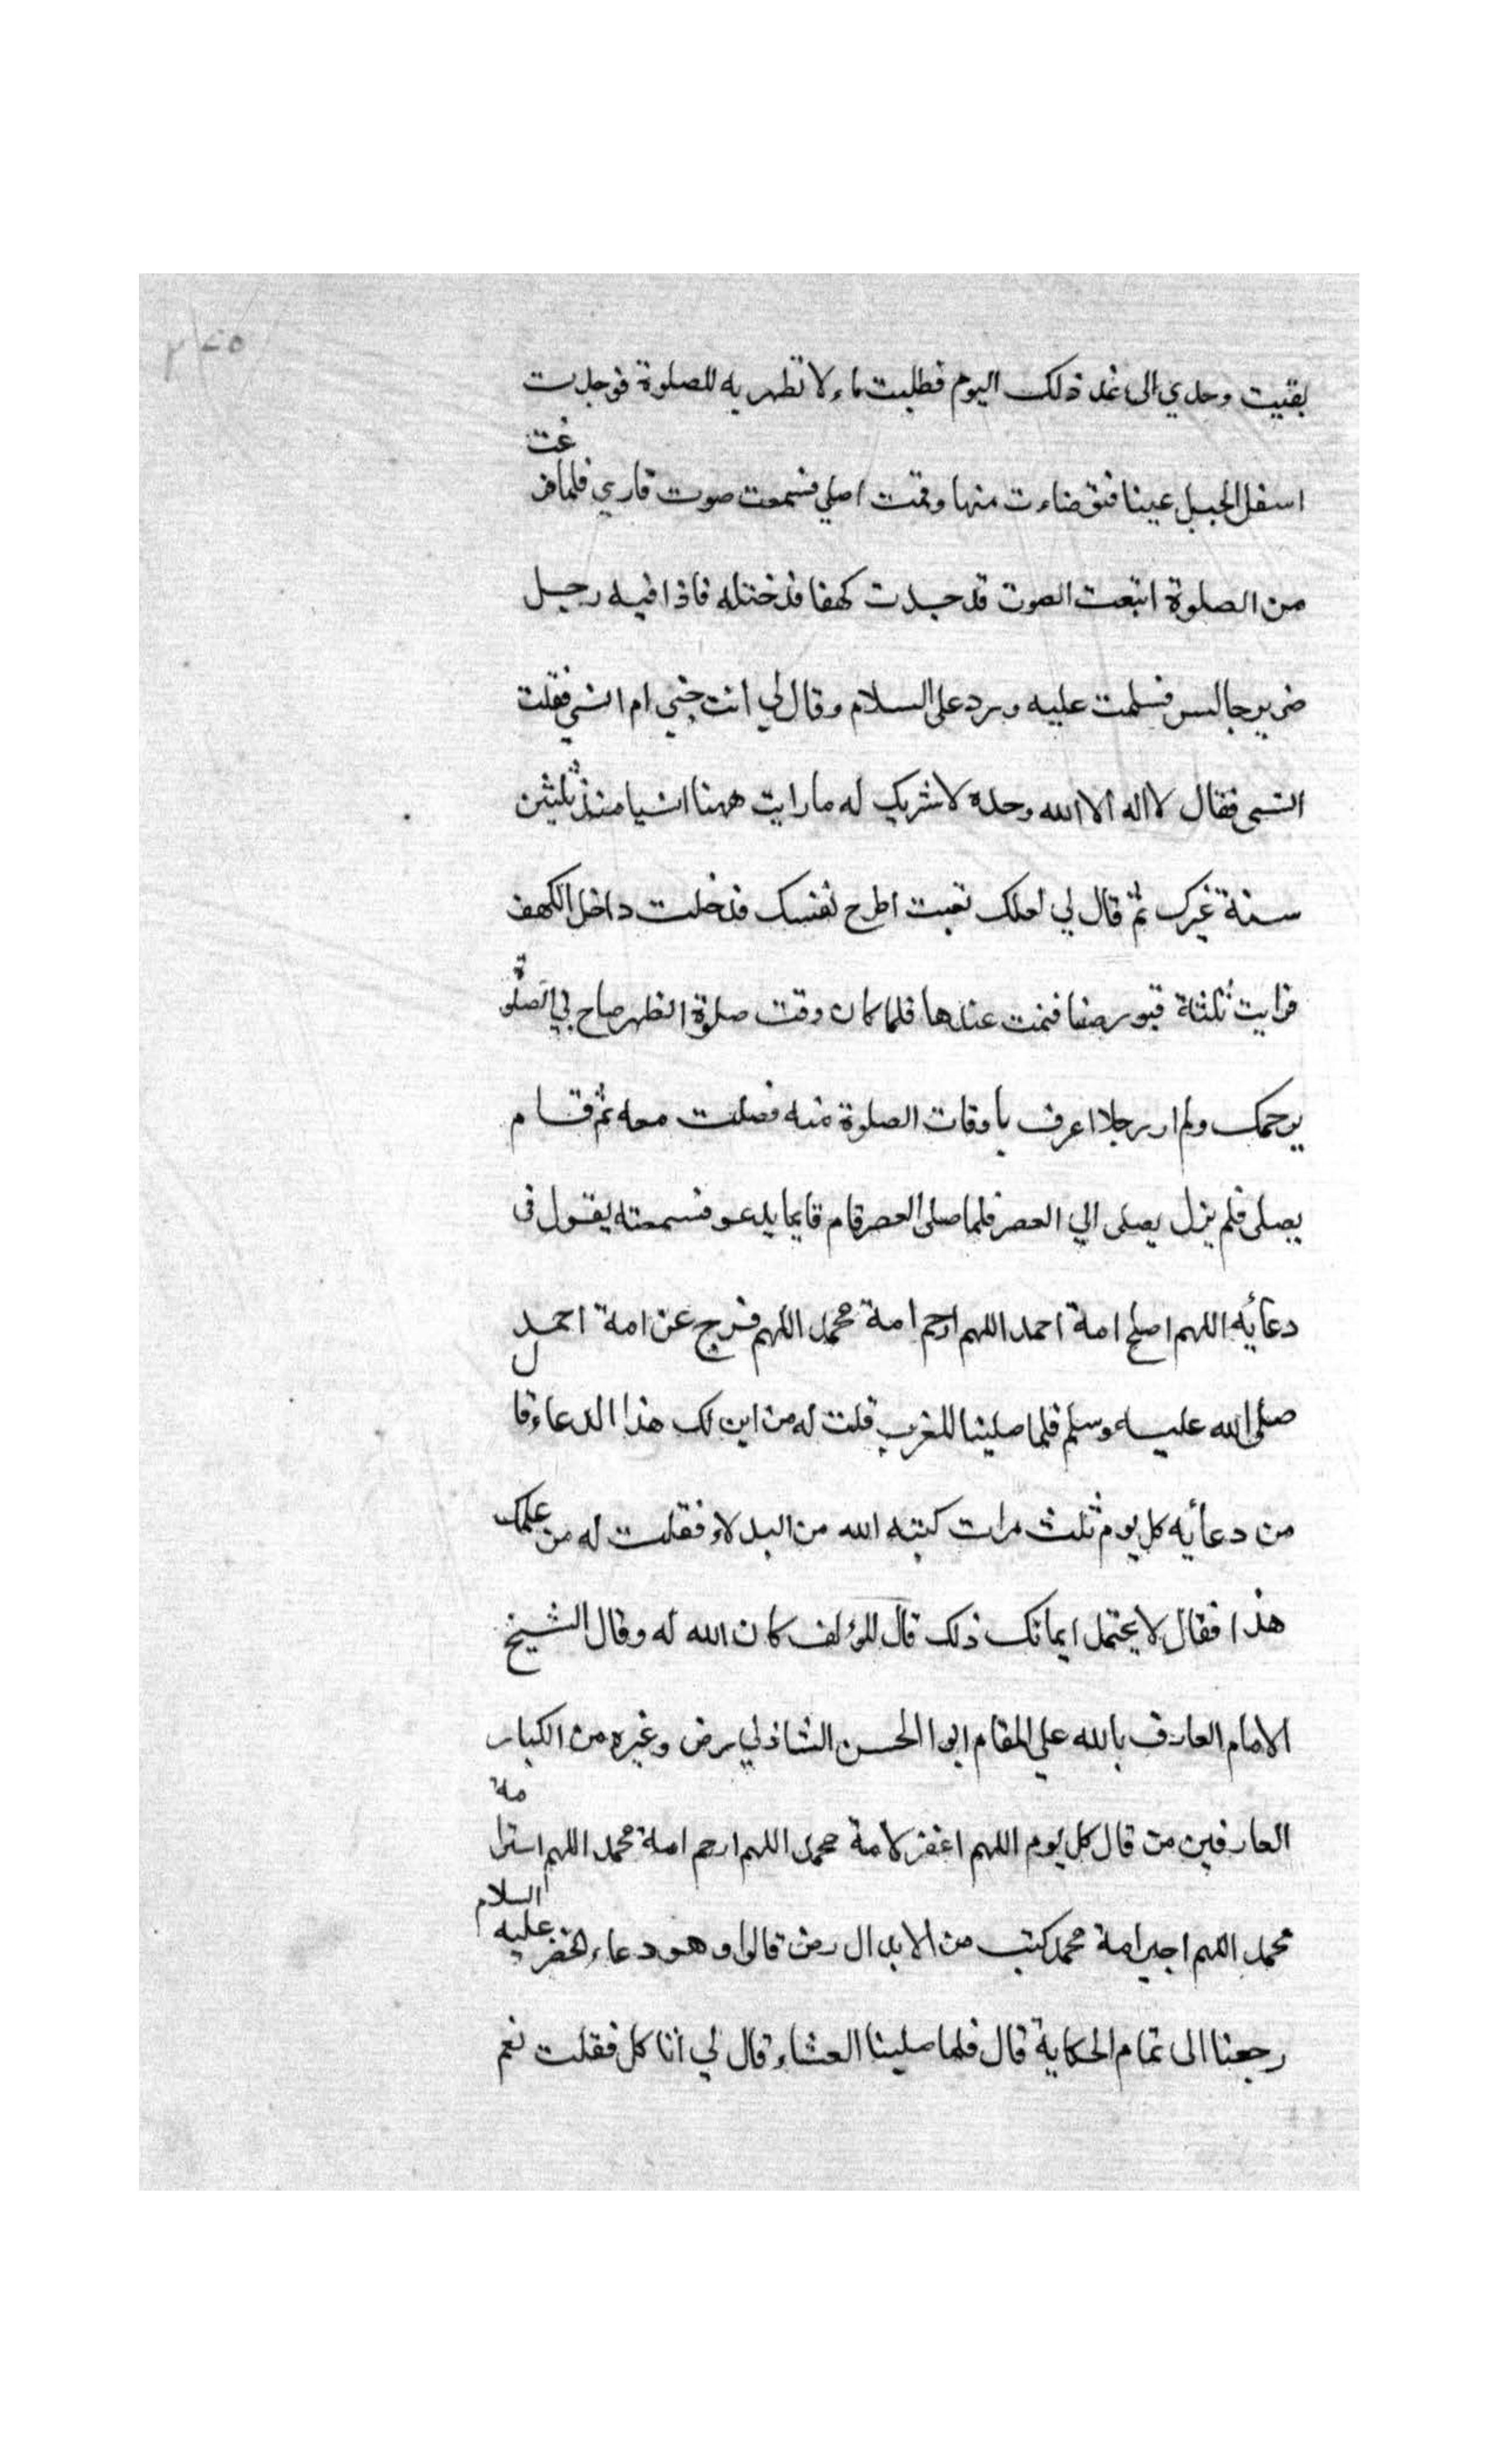 بقيت وحدي الى غد ذلك اليوم فطلبت ماء لا تطهر به للصلوة فوجدت
اسفل الجبل عينا فتوضاءت منها وقمت اصلي فسمعت صوت قاري فلما فرغت
من الصلوة اتبعت الصوت قد جدت كهفا فدخلته فاذا فيه رجل
ضرير جالس فسلمت عليه ورد علي السلام وقال لي انت جني ام انسي فقلت
انسي فقال لا اله الا الله وحده لا شريك له ما رايت ههنا انسيا منذ ثلثين
سنة غيرك ثم قال لي لعلك تعبت اطرح نفسك فدخلت داخل الكهف
فرايت ثلثة قبور صفا فنمت عندها فلما كان وقت صلوة الظهر صاح بي الصلوة
يرحمك ولم ار رجلا اعرف باوقات الصلوة منه فصلت معه ثم قام
يصلى فلم يزل يصلى الي العصر فلما صلى العصر قام قايما يدعو فسمعته يقول في
دعائه اللهم اصلح امة احمد اللهم ارحم امة محمد اللهم فرج عن امة احمد
صلى الله عليه وسلم فلما صلينا المغرب قلت له من اين لك هذا الدعاء قال
من دعائه كل يوم ثلث مرات كتبه الله من البدلاء فقلت له من علمك
هذا فقال لا يحتمل ايمانك ذلك قال المؤلف كان الله له وقال الشيخ
الامام العارف بالله علي المقام ابوا الحسن الشاذلي رض وغيره من الكبار
العارفين من قال كل يوم اللهم اغفر لامة محمد اللهم ارحم امة محمد اللهم استر امة
محمد اللهم اجبر امة محمد كتب من الابدال رض قالوا وهو دعاء الخضر عليه السلام
رجعنا الى تمام الحكاية قال فلما صلينا العشاء قال لي اتاكل فقلت نعم